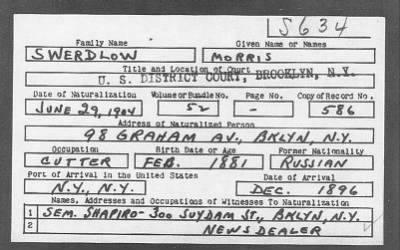 S634
Family Name Given Name or Names
SWERDLOW MORRIS
Title and Location of Court
U. S. DISTRICT COURT, BROOKLYN, N.Y.
Date of Naturalization Volume or Bundle No. Page No. Copy of Record No.
JUNE 29, 1904 52 - 586
Address of Naturalized Person
98 GRAHAM AV., BKLYN, N.Y.
Occupation Birth Date or Age Former Nationality
CUTTER FEB. 1881 RUSSIAN
Port of Arrival in the United States Date of Arrival
N.Y., N.Y. DEC. 1896
Names, Addresses and Occupations of Witnesses To Naturalization
1 SEM. SHAPIRO - 300 SUYDAM ST., BKLYN, N.Y.
2 NEWSDEALER